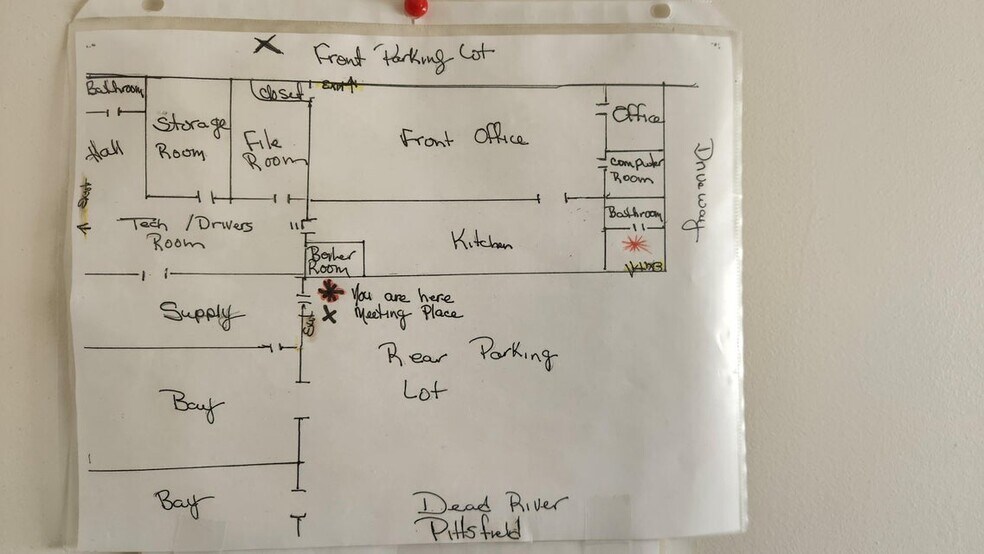 X Front Parking Lot
Bathroom
Closet
EXIT
Storage
Room
File
Room
Front Office
Office
Hall
Computer
Room
Driveway
Exit
Bathroom
Tech / Drivers
Room
Kitchen
Boiler
Room
EXIT
You are here
X Meeting Place
Supply
Exit
Rear Parking
Lot
Bay
Bay
Dead River
Pittsfield